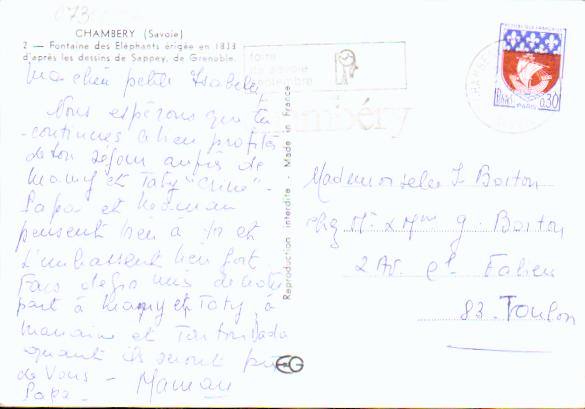 073
CHAMBERY (Savoie)
2 — Fontaine des Eléphants érigée en 1838
d'après les dessins de Sappey, de Grenoble.
Ma chère petite Isabelle,
Nous espérons que tu
continues à bien profiter
de ton séjour auprès de
Mamy et Taty "Crine" -
Papa et Maman
pensent bien à toi et
t'embrassent bien fort
Fais de gros de notre
part à Mamy et Taty, à
et Tonton Dada
quand ils seront près
de Vous -
Papa - Maman
Reproduction interdite - Made in France
EG
foire
septembre
chambéry
CHAMBE
REPUBLIQUE FRANÇAISE
POSTES
0,30
PARIS
Mademoiselle I Boiton
chez Mr & Mme G. Boiton
2 Av. St Fabien
83. Toulon